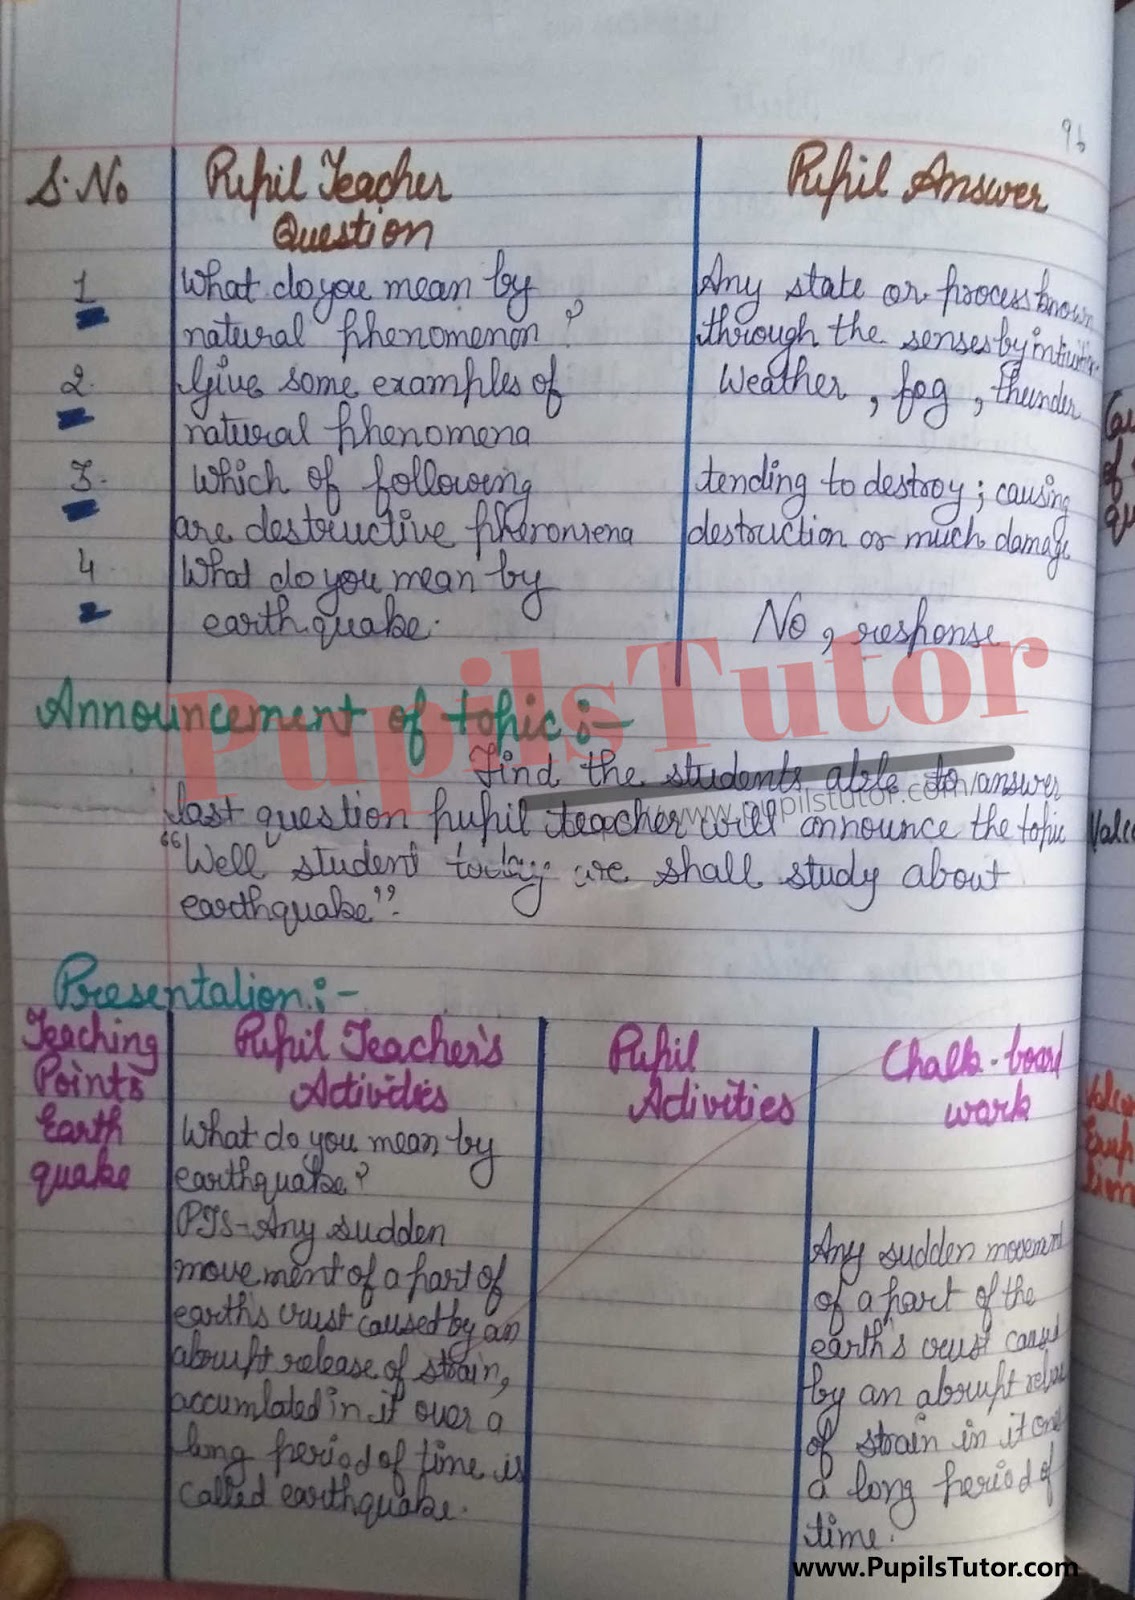 96
S.No Pupil Teacher Pupil Answer
Question
1 What do you mean by Any state or process known
natural phenomenon? through the senses by
2. Give some examples of Weather, fog, thunder
natural phenomena
3. Which of following tending to destroy; causing
are destructive destruction or much damage
4 What do you mean by
earthquake. No, response
Announcement of topic:-
Find the students able to answer
last question pupil teacher will announce the topic
"Well student today we shall study about
earthquake".
Presentation:-
Teaching Pupil Teacher's Pupil Chalk-board
Points Activities Activities work
Earth What do you mean by
quake earthquake?
PTS-Any sudden Any sudden movement
movement of a part of of a part of the
earth's crust caused by an earth's crust
abrupt release of strain, by an abrupt
accumlated in it over a of strain in it
long period of time is a long period of
called earthquake. time.
PupilsTutor
www.pupilstutor.com
www.PupilsTutor.com